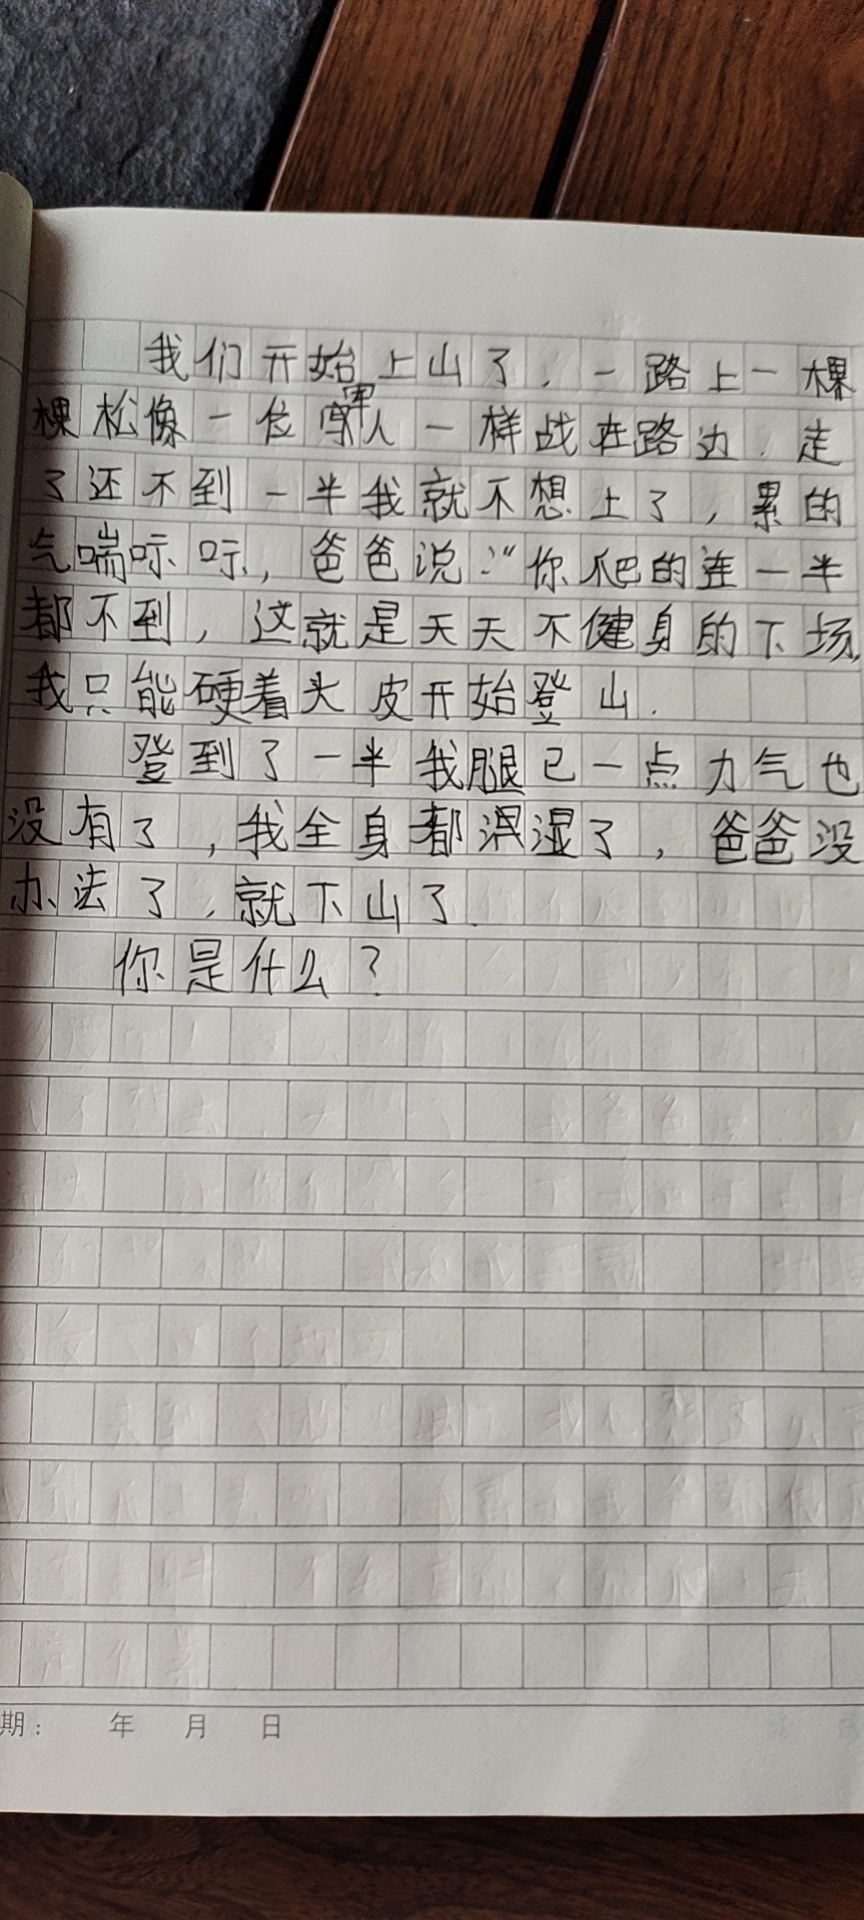 我们开始上山了，一路上一棵
棵松像一位军人一样战在路边．走
了还不到一半我就不想上了，累的
气喘吁吁，爸爸说：“你爬的连一半
都不到，这就是天天不健身的下场，
我只能硬着头皮开始登山．
登到了一半我腿已一点力气也
没有了，我全身都湿了，爸爸没
办法了，就下山了．
你是什么？
期： 年 月 日